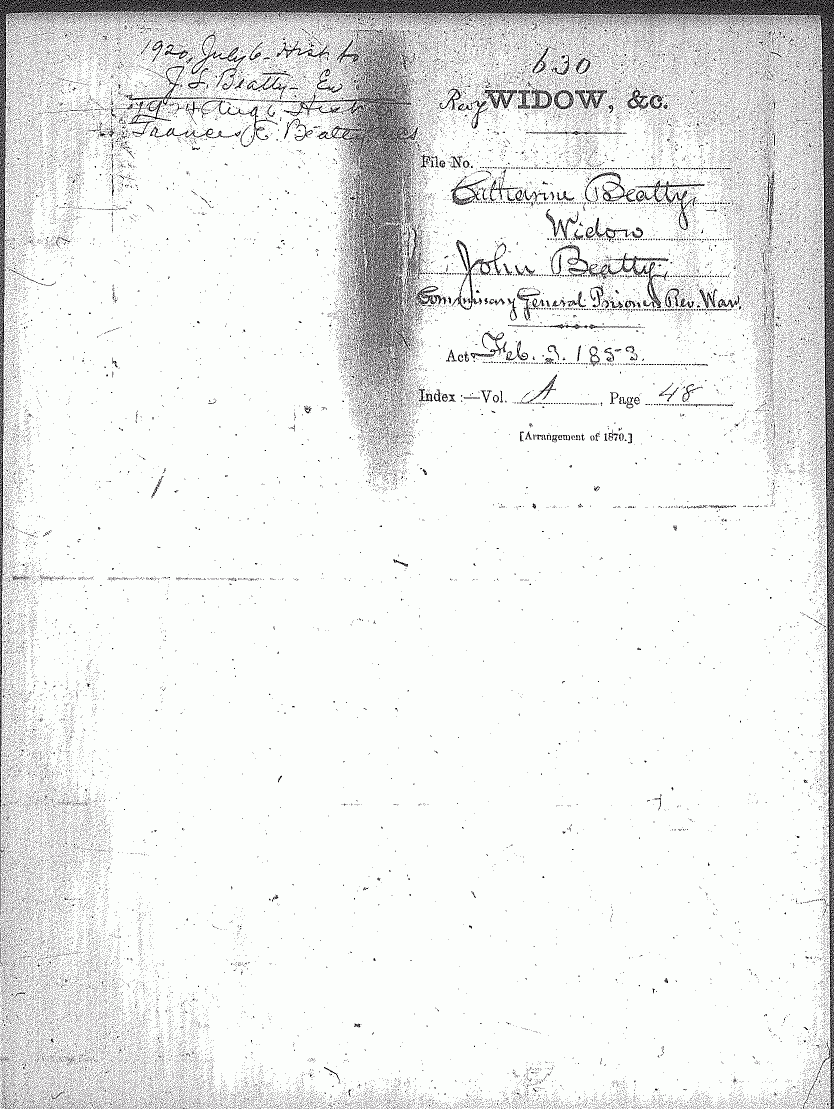 1920, July 6 - Hist to
J. L. Beatty -
1924 Aug 6 Hist
Frances E. Beatty
630
Rev WIDOW, &c.
File No.
Catharine Beatty,
Widow
John Beatty,
Commissary General Prisoners Rev. War.
Act Feb. 3. 1853.
Index :—Vol. A, Page 48
[Arrangement of 1870.]